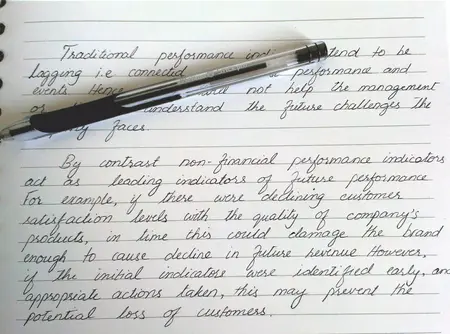 Traditional performance ind tend to be
lagging i.e connected performance and
events. Hence not help the management
or understand the future challenges the
faces.
By contrast non-financial performance indicators
act as leading indicators of future performance
For example, if there were declining customer
satisfaction levels with the quality of company's
products, in time this could damage the brand
enough to cause decline in future revenue However,
if the initial indicators were identified early, and
appropriate actions taken, this may prevent the
potential loss of customers.